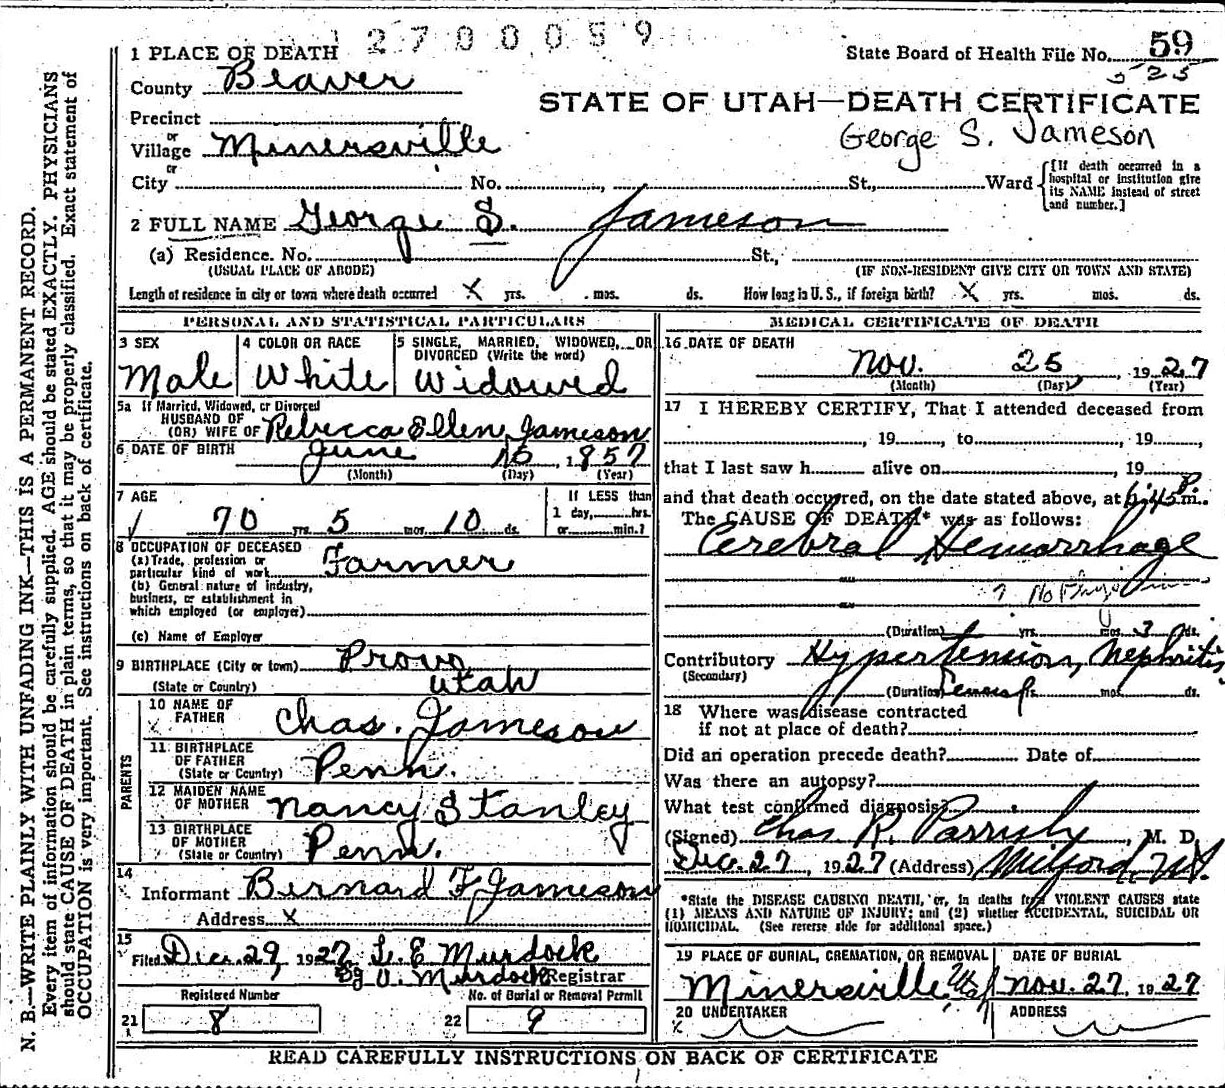 12700059
1 PLACE OF DEATH
State Board of Health File No. 59
525
County Beaver
STATE OF UTAH—DEATH CERTIFICATE
Precinct
George S. Jameson
or
Village Minersville
or
City No. , St., Ward
[If death occurred in a
hospital or institution give
its NAME instead of street
and number.]
2 FULL NAME George S. Jameson
(a) Residence. No. St.,
(USUAL PLACE OF ABODE) (IF NON-RESIDENT GIVE CITY OR TOWN AND STATE)
Length of residence in city or town where death occurred X yrs. mos. ds. How long in U. S., if foreign birth? X yrs. mos. ds.
PERSONAL AND STATISTICAL PARTICULARS
3 SEX
Male
4 COLOR OR RACE
White
5 SINGLE, MARRIED, WIDOWED, OR
DIVORCED (Write the word)
Widowed
5a If Married, Widowed, or Divorced
HUSBAND OF
(OR) WIFE OF Rebecca Ellen Jameson
6 DATE OF BIRTH June 1857
(Month) (Day) (Year)
7 AGE
70 yrs. 5 mos. 10 ds.
If LESS than
1 day, hrs.
or min.?
8 OCCUPATION OF DECEASED
(a) Trade, profession or
particular kind of work Farmer
(b) General nature of industry,
business, or establishment in
which employed (or employer)
(c) Name of Employer
9 BIRTHPLACE (City or town) Provo
(State or Country) Utah
PARENTS
10 NAME OF
FATHER Chas. Jameson
11 BIRTHPLACE
OF FATHER
(State or Country) Penn.
12 MAIDEN NAME
OF MOTHER Nancy Stanley
13 BIRTHPLACE
OF MOTHER
(State or Country) Penn.
14
Informant Bernard F Jameson
Address X
15
Filed Dec. 29, 1927 L. E Murdock
By V. Murdock Registrar
Registered Number No. of Burial or Removal Permit
21 8 22 9
MEDICAL CERTIFICATE OF DEATH
16 DATE OF DEATH
Nov. 25, 1927
(Month) (Day) (Year)
17 I HEREBY CERTIFY, That I attended deceased from
, 19 , to , 19 ,
that I last saw h alive on , 19
and that death occurred, on the date stated above, at 6:45 P.m.
The CAUSE OF DEATH* was as follows:
Cerebral Hemorrhage
? No Physician
(Duration) yrs. mos. 3 ds.
Contributory Hypertension, Nephritis
(Secondary)
(Duration) yrs. mos. ds.
18 Where was disease contracted
if not at place of death?
Did an operation precede death? Date of
Was there an autopsy?
What test confirmed diagnosis?
(Signed) Chas. R. Parrish, M. D.
Dec. 27, 1927 (Address) Milford, Ut.
*State the DISEASE CAUSING DEATH, or, in deaths from VIOLENT CAUSES state
(1) MEANS AND NATURE OF INJURY; and (2) whether ACCIDENTAL, SUICIDAL OR
HOMICIDAL. (See reverse side for additional space.)
19 PLACE OF BURIAL, CREMATION, OR REMOVAL
Minersville, Utah
DATE OF BURIAL
Nov. 27, 1927
20 UNDERTAKER
X
ADDRESS
READ CAREFULLY INSTRUCTIONS ON BACK OF CERTIFICATE
N. B.—WRITE PLAINLY WITH UNFADING INK—THIS IS A PERMANENT RECORD.
Every item of information should be carefully supplied. AGE should be stated EXACTLY. PHYSICIANS
should state CAUSE OF DEATH in plain terms, so that it may be properly classified. Exact statement of
OCCUPATION is very important. See instructions on back of certificate.